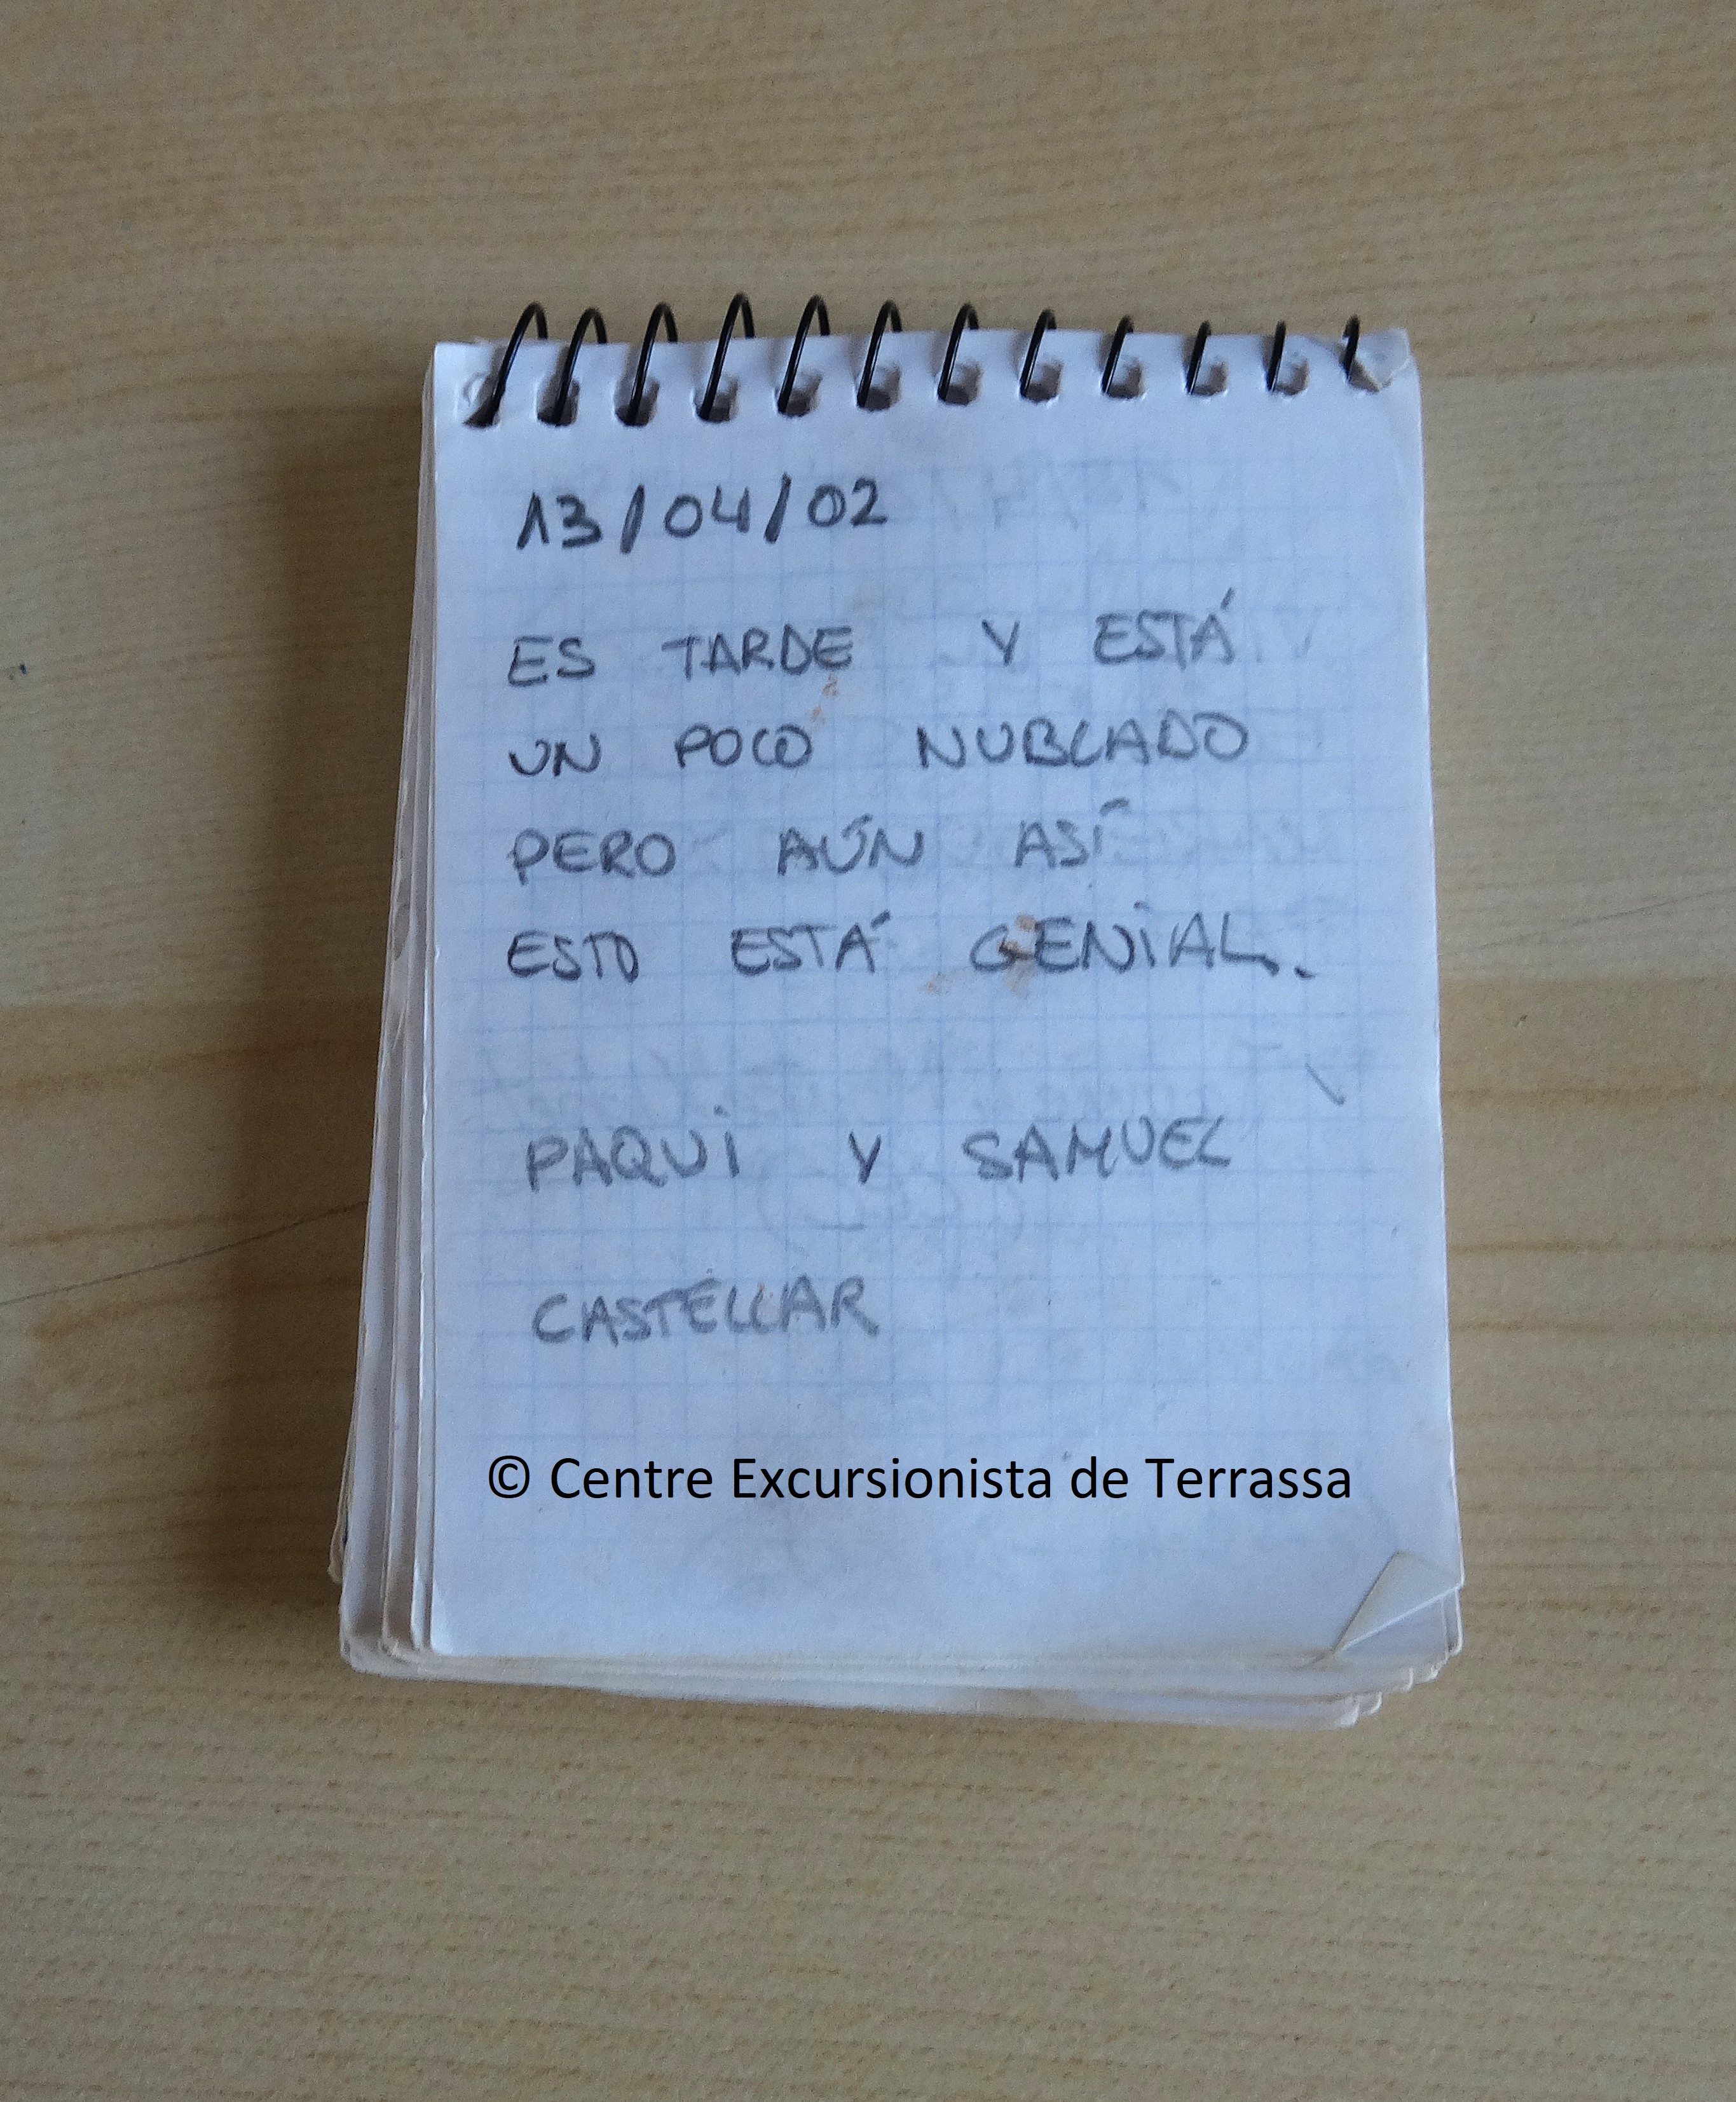 13/04/02
ES TARDE Y ESTÁ
UN POCO NUBLADO
PERO AÚN ASÍ
ESTO ESTÁ GENiAL.
PAQUi Y SAMUEL
CASTELLAR
© Centre Excursionista de Terrassa